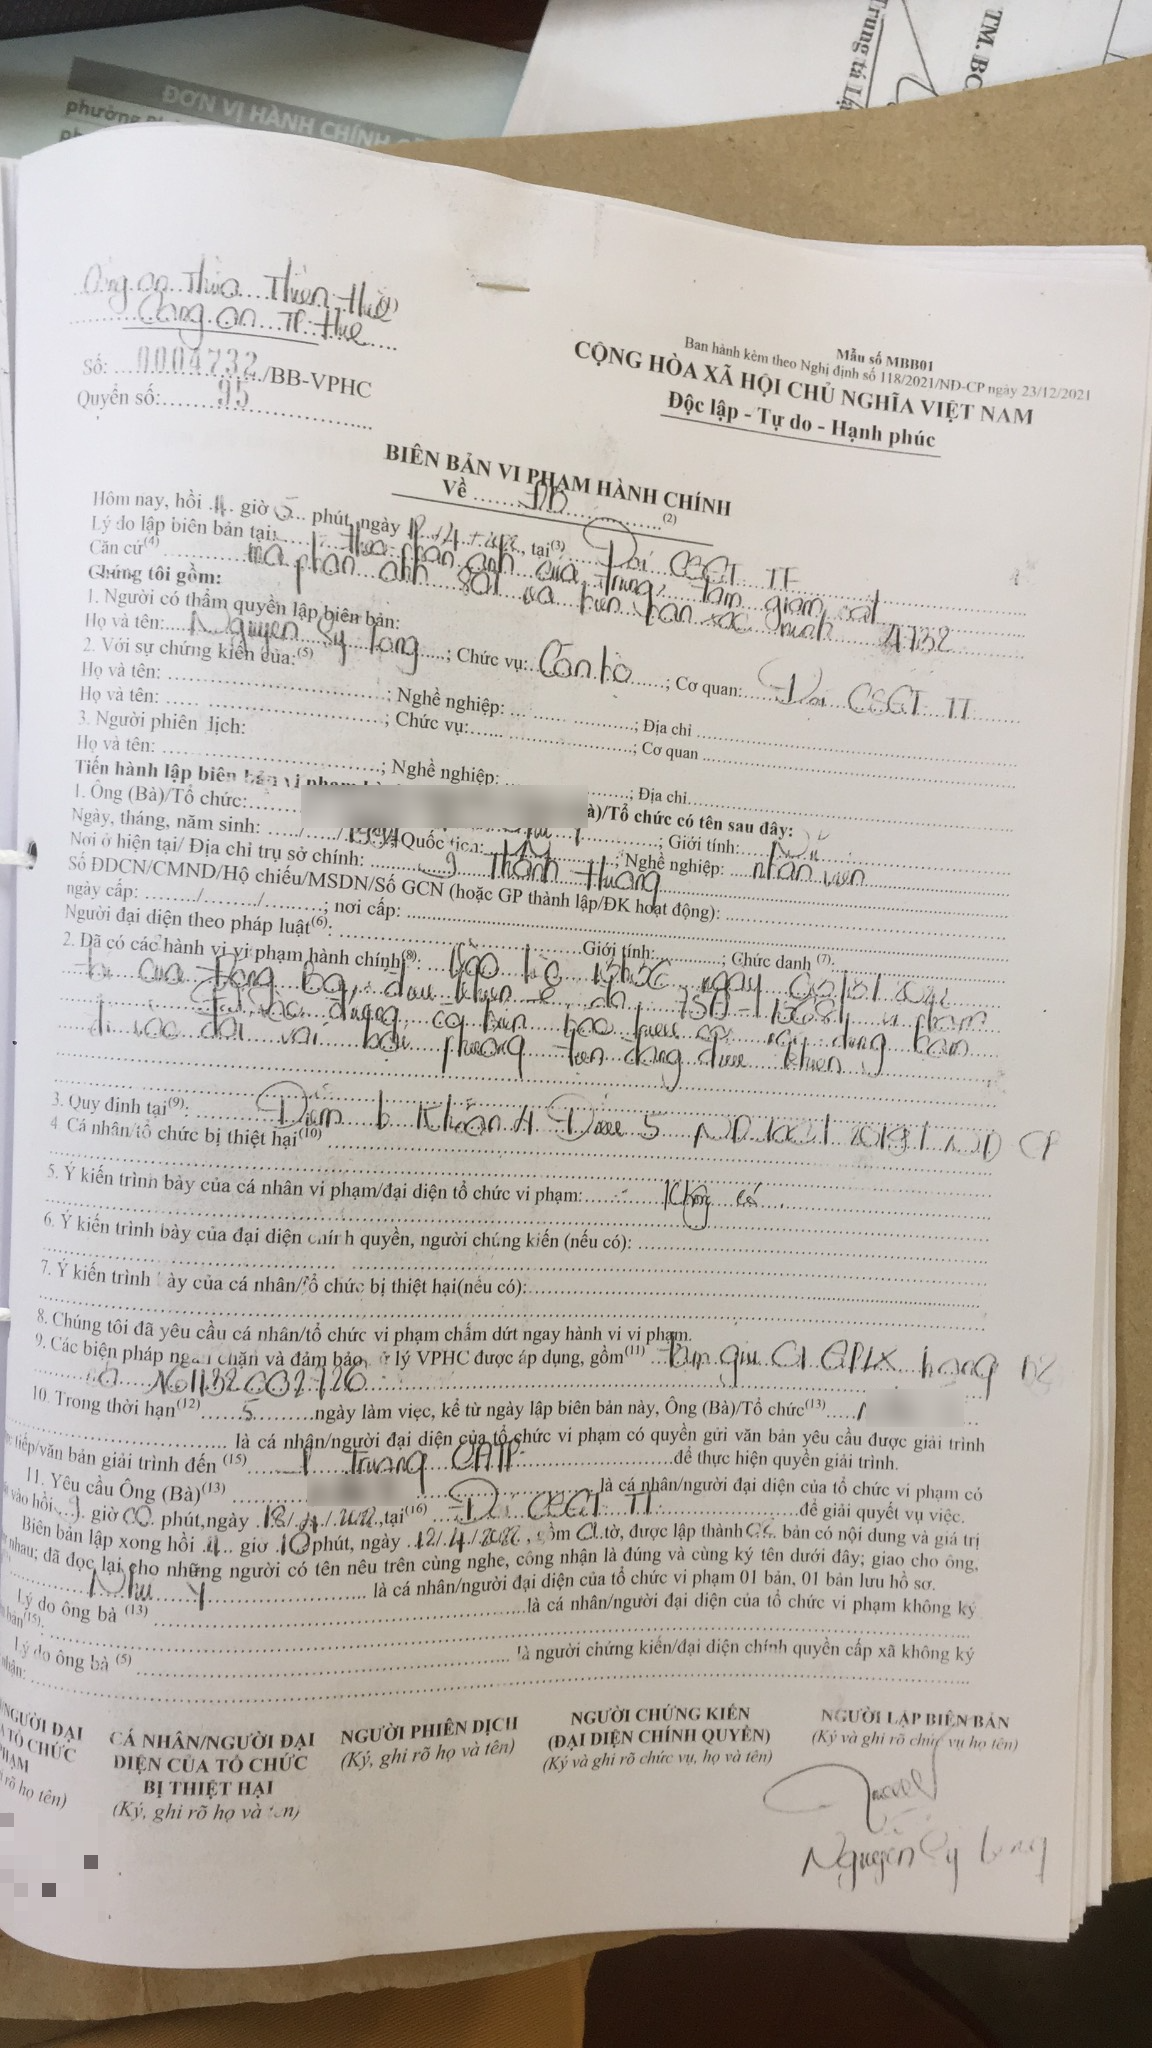 ĐƠN VỊ HÀNH CHÍNH
phường
Trung tá
TM.
Công an Thừa Thiên Huế (1)
Công an TP Huế
Số: 0004732/BB-VPHC
Quyển số: 95
Mẫu số MBB01
Ban hành kèm theo Nghị định số 118/2021/NĐ-CP ngày 23/12/2021
CỘNG HÒA XÃ HỘI CHỦ NGHĨA VIỆT NAM
Độc lập - Tự do - Hạnh phúc
BIÊN BẢN VI PHẠM HÀNH CHÍNH
Về ĐB (2)
Hôm nay, hồi giờ 5 phút, ngày /4/, tại(3) Đội CSGT TT
Lý do lập biên bản tại: theo phản ánh của trung tâm giám sát
Căn cứ(4) mà phản ánh và biên bản xác minh 4732
Chúng tôi gồm:
1. Người có thẩm quyền lập biên bản:
Họ và tên: Nguyễn Sỹ Long; Chức vụ: Cán bộ; Cơ quan: Đội CSGT TT
2. Với sự chứng kiến của:(5)
Họ và tên: ; Nghề nghiệp: ; Địa chỉ
Họ và tên: ; Chức vụ: ; Cơ quan
3. Người phiên dịch:
Họ và tên: ; Nghề nghiệp: ; Địa chỉ
Tiến hành lập biên bản vi phạm à)/Tổ chức có tên sau đây:
1. Ông (Bà)/Tổ chức: ; Giới tính: Nữ
Ngày, tháng, năm sinh: / / Quốc tịch: ; Nghề nghiệp: nhân viên
Nơi ở hiện tại/ Địa chỉ trụ sở chính: Thanh Hương
Số ĐDCN/CMND/Hộ chiếu/MSDN/Số GCN (hoặc GP thành lập/ĐK hoạt động):
ngày cấp: / / ; nơi cấp:
Người đại diện theo pháp luật(6): Giới tính: ; Chức danh (7):
2. Đã có các hành vi vi phạm hành chính(8): Vào lúc ngày
Đống Đa, điều khiển ô tô 75D- vi phạm
sử dụng, có biển báo hiệu có nội dung cấm
đi vào đối với loại phương tiện đang điều khiển
3. Quy định tại(9): Điểm b Khoản 4 Điều 5 NĐ 100/2019/NĐ CP
4. Cá nhân/tổ chức bị thiệt hại(10)
5. Ý kiến trình bày của cá nhân vi phạm/đại diện tổ chức vi phạm: Không có
6. Ý kiến trình bày của đại diện chính quyền, người chứng kiến (nếu có):
7. Ý kiến trình bày của cá nhân/tổ chức bị thiệt hại(nếu có):
8. Chúng tôi đã yêu cầu cá nhân/tổ chức vi phạm chấm dứt ngay hành vi vi phạm.
9. Các biện pháp ngăn chặn và đảm bảo xử lý VPHC được áp dụng, gồm(11) Tạm giữ 01 GPLX hạng B2
số
10. Trong thời hạn(12) 5 ngày làm việc, kể từ ngày lập biên bản này, Ông (Bà)/Tổ chức(13)
là cá nhân/người đại diện của tổ chức vi phạm có quyền gửi văn bản yêu cầu được giải trình
tiếp/văn bản giải trình đến (15) Trưởng CATP để thực hiện quyền giải trình.
11. Yêu cầu Ông (Bà)(13) là cá nhân/người đại diện của tổ chức vi phạm có
vào hồi 9 giờ 00 phút, ngày 18/4/2022, tại(16) Đội CSGT TT để giải quyết vụ việc.
Biên bản lập xong hồi giờ 10 phút, ngày 12/4/2022, gồm 01 tờ, được lập thành 02 bản có nội dung và giá trị
nhau; đã đọc lại cho những người có tên nêu trên cùng nghe, công nhận là đúng và cùng ký tên dưới đây; giao cho ông,
Như Ý là cá nhân/người đại diện của tổ chức vi phạm 01 bản, 01 bản lưu hồ sơ.
Lý do ông bà (13) là cá nhân/người đại diện của tổ chức vi phạm không ký
bản(15):
Lý do ông bà (5) là người chứng kiến/đại diện chính quyền cấp xã không ký
NGƯỜI ĐẠI
TỔ CHỨC
PHẠM
rõ họ tên)
CÁ NHÂN/NGƯỜI ĐẠI
DIỆN CỦA TỔ CHỨC
BỊ THIỆT HẠI
(Ký, ghi rõ họ và tên)
NGƯỜI PHIÊN DỊCH
(Ký, ghi rõ họ và tên)
NGƯỜI CHỨNG KIẾN
(ĐẠI DIỆN CHÍNH QUYỀN)
(Ký và ghi rõ chức vụ, họ và tên)
NGƯỜI LẬP BIÊN BẢN
(Ký và ghi rõ chức vụ họ tên)
Nguyễn Sỹ Long